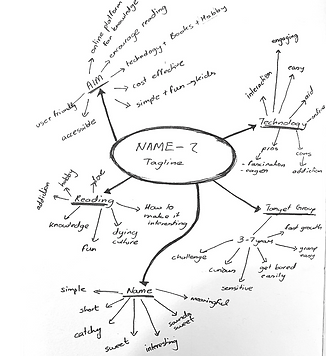 NAME - ?
Tagline
AIM
online platform
for knowledge
encourage reading
technology + Books + Hobby
cost effective
simple + fun → kids
user friendly
accessible
Technology
engaging
easy
interaction
aid
online
pros
cons
- fascination
- eager
addiction
Target Group
3-7 years
fast growth
grasp
easy
get bored
easily
sensitive
curious
challenge
Reading
addiction
hobby
How to
make it
interesting
dying
culture
fun
knowledge
Name
simple
short
catchy
sweet
interesting
sounds
sweet
meaningful